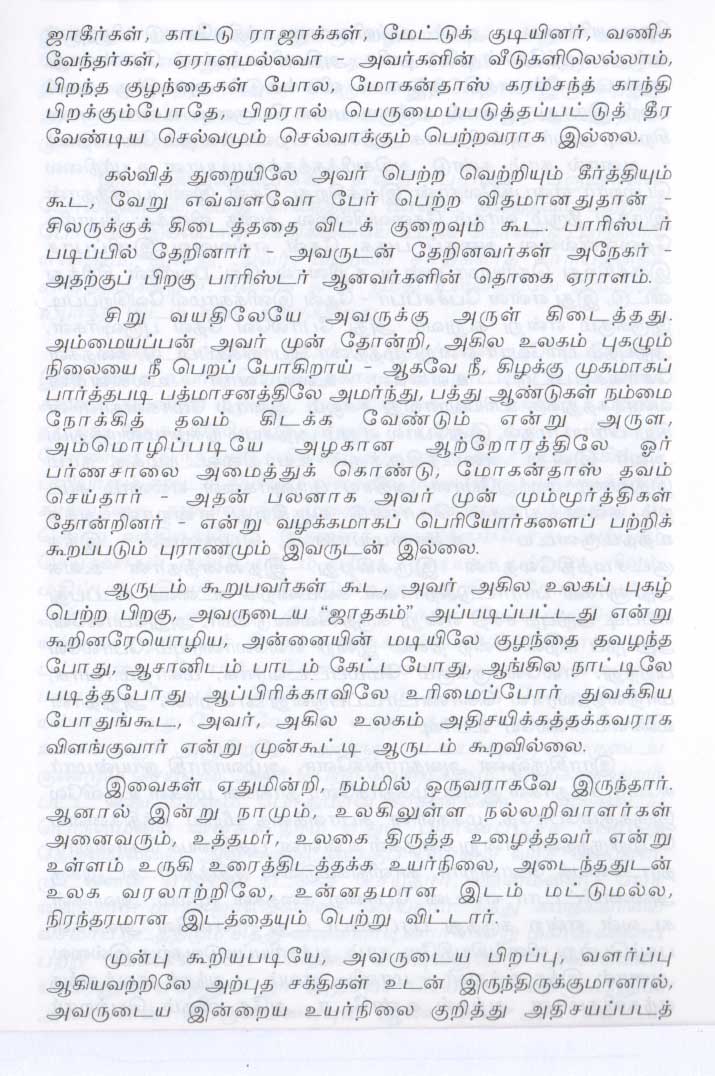 ஜாகீர்கள், காட்டு ராஜாக்கள், மேட்டுக் குடியினர், வணிக
வேந்தர்கள், ஏராளமல்லவா – அவர்களின் வீடுகளிலெல்லாம்,
பிறந்த குழந்தைகள் போல, மோகன்தாஸ் கரம்சந்த் காந்தி
பிறக்கும்போதே, பிறரால் பெருமைப்படுத்தப்பட்டுத் தீர
வேண்டிய செல்வமும் செல்வாக்கும் பெற்றவராக இல்லை.
கல்வித் துறையிலே அவர் பெற்ற வெற்றியும் கீர்த்தியும்
கூட, வேறு எவ்வளவோ பேர் பெற்ற விதமானதுதான் –
சிலருக்குக் கிடைத்ததை விடக் குறைவும் கூட. பாரிஸ்டர்
படிப்பில் தேறினார் – அவருடன் தேறினவர்கள் அநேகர் –
அதற்குப் பிறகு பாரிஸ்டர் ஆனவர்களின் தொகை ஏராளம்.
சிறு வயதிலேயே அவருக்கு அருள் கிடைத்தது.
அம்மையப்பன் அவர் முன் தோன்றி, அகில உலகம் புகழும்
நிலையை நீ பெறப் போகிறாய் – ஆகவே நீ, கிழக்கு முகமாகப்
பார்த்தபடி பத்மாசனத்திலே அமர்ந்து, பத்து ஆண்டுகள் நம்மை
நோக்கித் தவம் கிடக்க வேண்டும் என்று அருள,
அம்மொழிப்படியே அழகான ஆற்றோரத்திலே ஓர்
பர்ணசாலை அமைத்துக் கொண்டு, மோகன்தாஸ் தவம்
செய்தார் – அதன் பலனாக அவர் முன் மும்மூர்த்திகள்
தோன்றினர் – என்று வழக்கமாகப் பெரியோர்களைப் பற்றிக்
கூறப்படும் புராணமும் இவருடன் இல்லை.
ஆருடம் கூறுபவர்கள் கூட, அவர் அகில உலகப் புகழ்
பெற்ற பிறகு, அவருடைய “ஜாதகம்” அப்படிப்பட்டது என்று
கூறினரேயொழிய, அன்னையின் மடியிலே குழந்தை தவழந்த
போது, ஆசானிடம் பாடம் கேட்டபோது, ஆங்கில நாட்டிலே
படித்தபோது ஆப்பிரிக்காவிலே உரிமைப்போர் துவக்கிய
போதுங்கூட, அவர், அகில உலகம் அதிசயிக்கத்தக்கவராக
விளங்குவார் என்று முன்கூட்டி ஆருடம் கூறவில்லை.
இவைகள் ஏதுமின்றி, நம்மில் ஒருவராகவே இருந்தார்.
ஆனால் இன்று நாமும், உலகிலுள்ள நல்லறிவாளர்கள்
அனைவரும், உத்தமர், உலகை திருத்த உழைத்தவர் என்று
உள்ளம் உருகி உரைத்திடத்தக்க உயர்நிலை, அடைந்ததுடன்
உலக வரலாற்றிலே, உன்னதமான இடம் மட்டுமல்ல,
நிரந்தரமான இடத்தையும் பெற்று விட்டார்.
முன்பு கூறியபடியே, அவருடைய பிறப்பு, வளர்ப்பு
ஆகியவற்றிலே அற்புத சக்திகள் உடன் இருந்திருக்குமானால்,
அவருடைய இன்றைய உயர்நிலை குறித்து அதிசயப்படத்